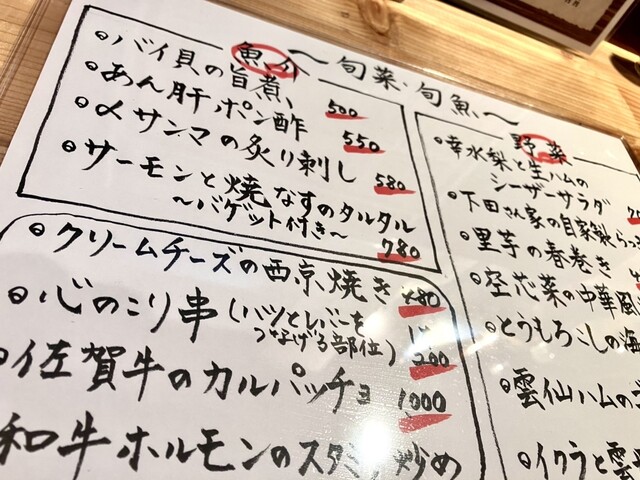 ～旬菜・旬魚～
魚介
◎バイ貝の旨煮 500
◎あん肝ポン酢 550
◎〆サンマの炙り刺し 580
◎サーモンと焼なすのタルタル
～バゲット付き～ 780
◎クリームチーズの西京焼き 480
◎心のこり串(ハツとレバーを
つなげる部位) 200
◎佐賀牛のカルパッチョ 1000
和牛ホルモンのスタミナ炒め
野菜
◎幸水梨と生ハムの
シーザーサラダ
◎下田さん家の自家製らっ
◎里芋の春巻き
◎空芯菜の中華風
◎とうもろこしの海
◎雲仙ハムの
◎イクラと雲